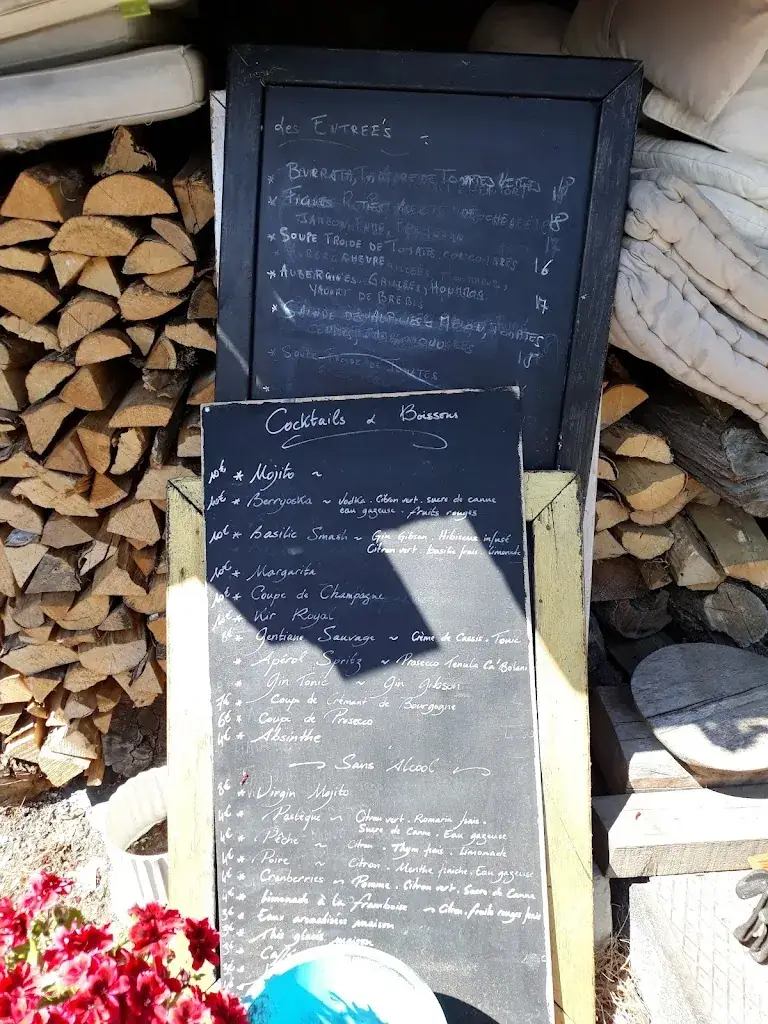 Les ENTREE'S
* BURRATA, TARTARE DE TOMATES VERTES 18
* FIGUES ROTIES 18
JAMBON
* SOUPE FROIDE DE TOMATES, CONCOMBRES
CHEVRE 16
* AUBERGINES GRILLEES, HOUMOUS
YAOURT DE BREBIS 17
MELON, TOMATES
18
* SOUPE FROIDE DE TOMATES
*
Cocktails & Boissons
10€ * Mojito ~
10€ * Berryoska ~ Vodka . Citron vert . sucre de canne
eau gazeuse . fruits rouges
10€ * Basilic Smash ~ Gin Gibson . Hibiscus infusé
Citron vert . basilic frais . Limonade
10€ * Margarita
10€ * Coupe de Champagne
10€ * Kir Royal
8€ * Gentiane Sauvage ~ Crème de Cassis . Tonic
* Apérol Spritz ~ Prosecco Tenuta Ca'Bolani
* Gin Tonic ~ Gin Gibson
7€ * Coup de Crémant de Bourgogne
6€ * Coupe de Prosecco
4€ * Absinthe
~ Sans Alcool ~
8€ * Virgin Mojito
4€ * Pastèque ~ Citron vert . Romarin frais .
Sucre de Canne . Eau gazeuse
4€ * Pêche ~ Citron . Thym frais . Limonade
4€ * Poire ~ Citron . Menthe fraiche . Eau gazeuse
4€ * Cranberries ~ Pomme . Citron vert . Sucre de Canne
* Limonade à la framboise ~ Citron . fruits rouges frais
3€ * Eaux aromatisées maison
3€ * Thé glacé maison